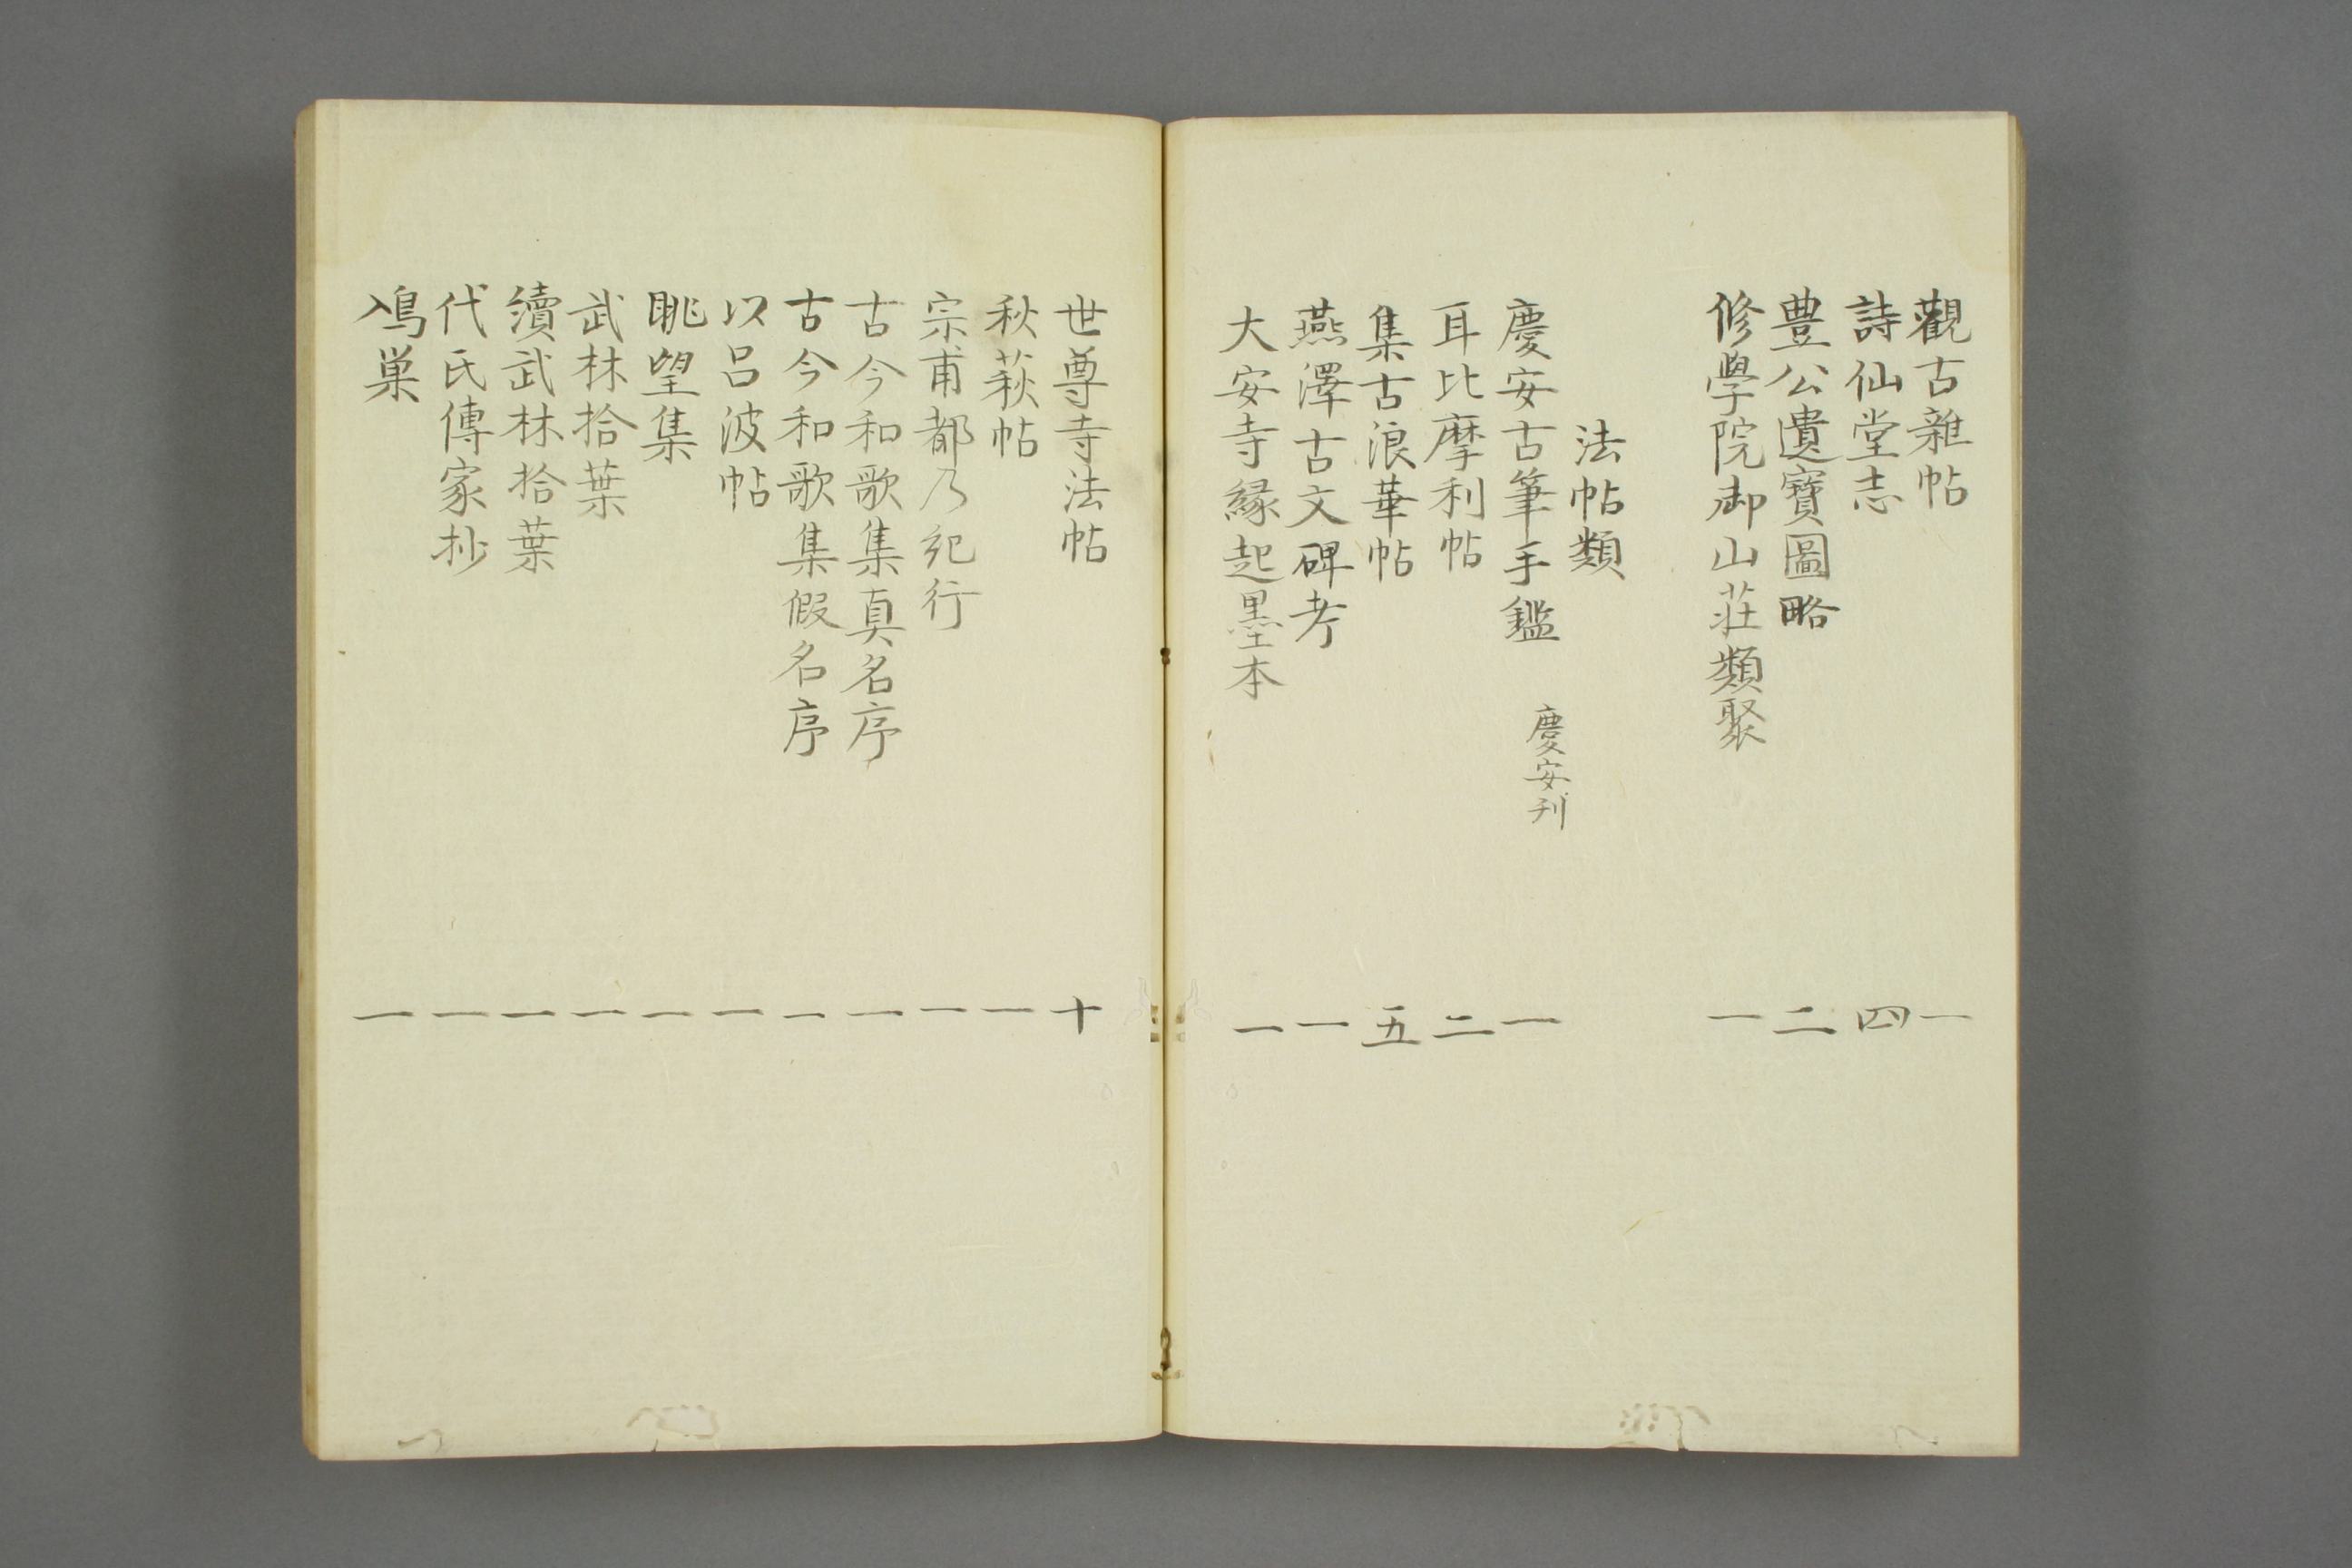 觀古雜帖 一
詩仙堂志 四
豊公遺寶圖略 二
修學院御山莊類聚 一
法帖類
慶安古筆手鑑 慶安刋 一
耳比摩利帖 二
集古浪華帖 五
燕澤古文碑考 一
大安寺縁起墨本 一
世尊寺法帖 十
秋萩帖 一
宗甫都乃紀行 一
古今和歌集真名序 一
古今和歌集假名序 一
以呂波帖 一
眺望集 一
武林拾葉 一
續武林拾葉 一
代氏傳家抄 一
鳰巣 一